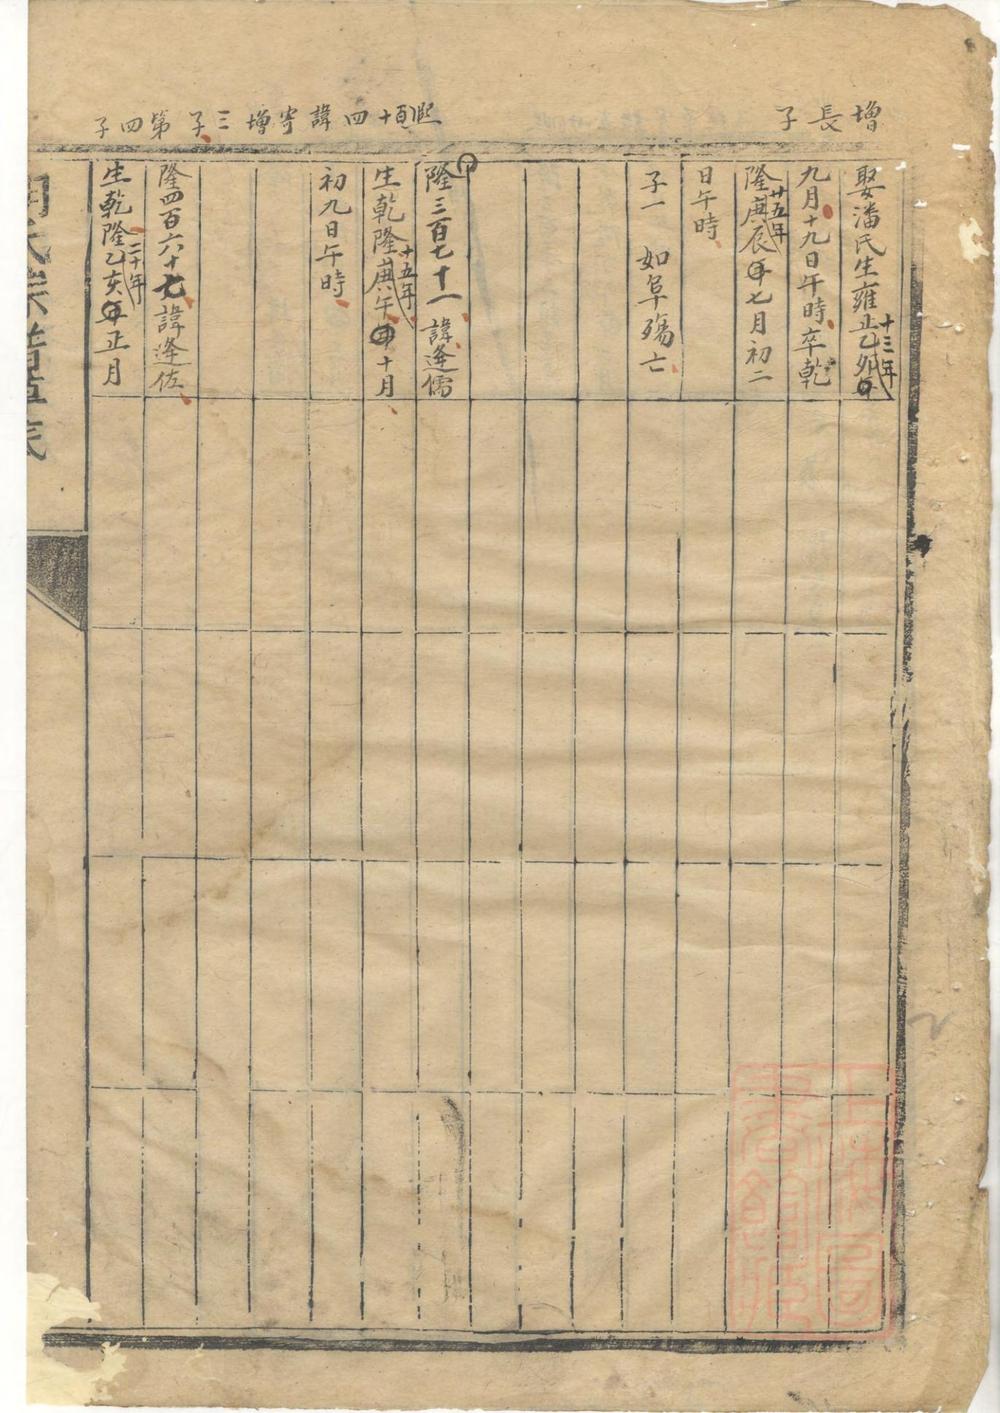 增長子
熙頁十四諱寄增三子第四子
娶潘氏生雍正十三年乙卯年
九月十九日午時卒乾
隆廿五年庚辰年七月初二
日午時
子一 如阜殤亡
隆三百七十一諱逢儒
生乾隆十五年庚午年十月
初九日午時
隆四百六十七諱逢佐
生乾隆二十年乙亥年正月